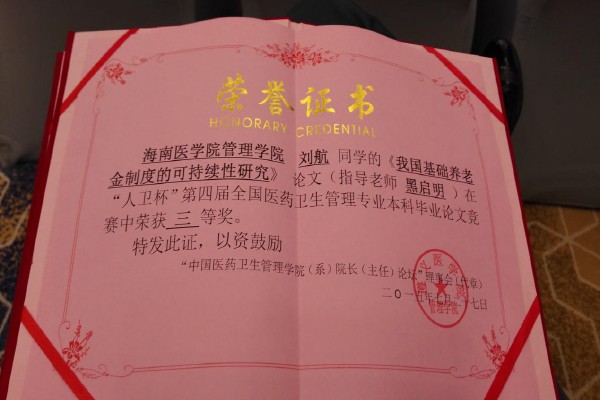 荣誉证书
HONORARY CREDENTIAL
海南医学院管理学院 刘航 同学的《我国基础养老
金制度的可持续性研究》 论文(指导老师 墨启明)在
“人卫杯”第四届全国医药卫生管理专业本科毕业论文竞
赛中荣获 三 等奖。
特发此证,以资鼓励
“中国医药卫生管理学院(系)院长(主任)论坛”理事会(代章)
二〇一五年七月十七日
管理学院